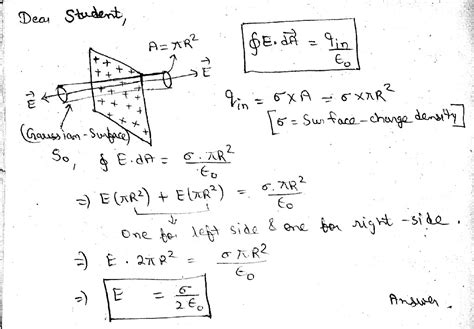 Dear Student,
A = πR²
∮E.dA⃗ = q_in/ε₀
+ + + + + + + + + + + + + + + +
E⃗
E⃗
(Gaussian-Surface)
q_in = σ×A = σ×πR²
[σ = Surface-charge density]
So, ∮ E.dA = σ.πR²/ε₀
⇒ E(πR²) + E(πR²) = σ.πR²/ε₀
One for left side & one for right-side.
⇒ E . 2πR² = σπR²/ε₀
⇒ E = σ/2ε₀
Answer.